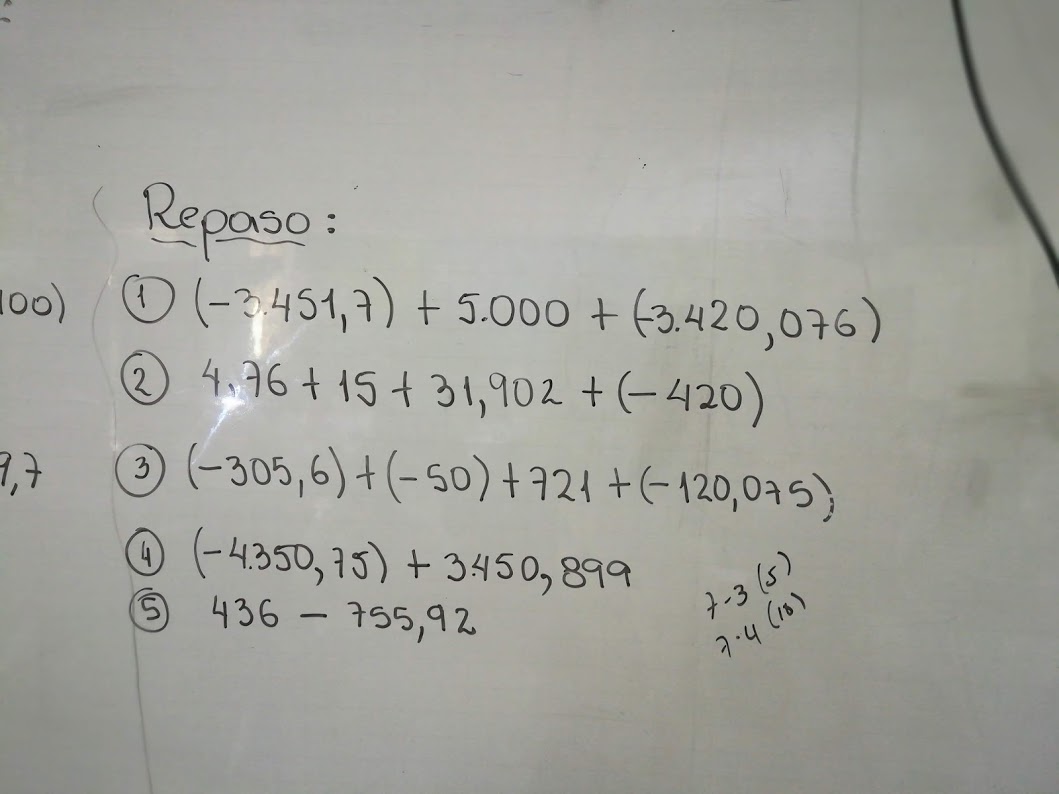 Repaso:
100) ① (-3.451,7) + 5.000 + (-3.420,076)
② 4,76 + 15 + 31,902 + (-420)
9,7 ③ (-305,6) + (-50) + 721 + (-120,075)
④ (-4.350,75) + 3.450,899
⑤ 436 - 755,92
7-3 (5)
7-4 (10)